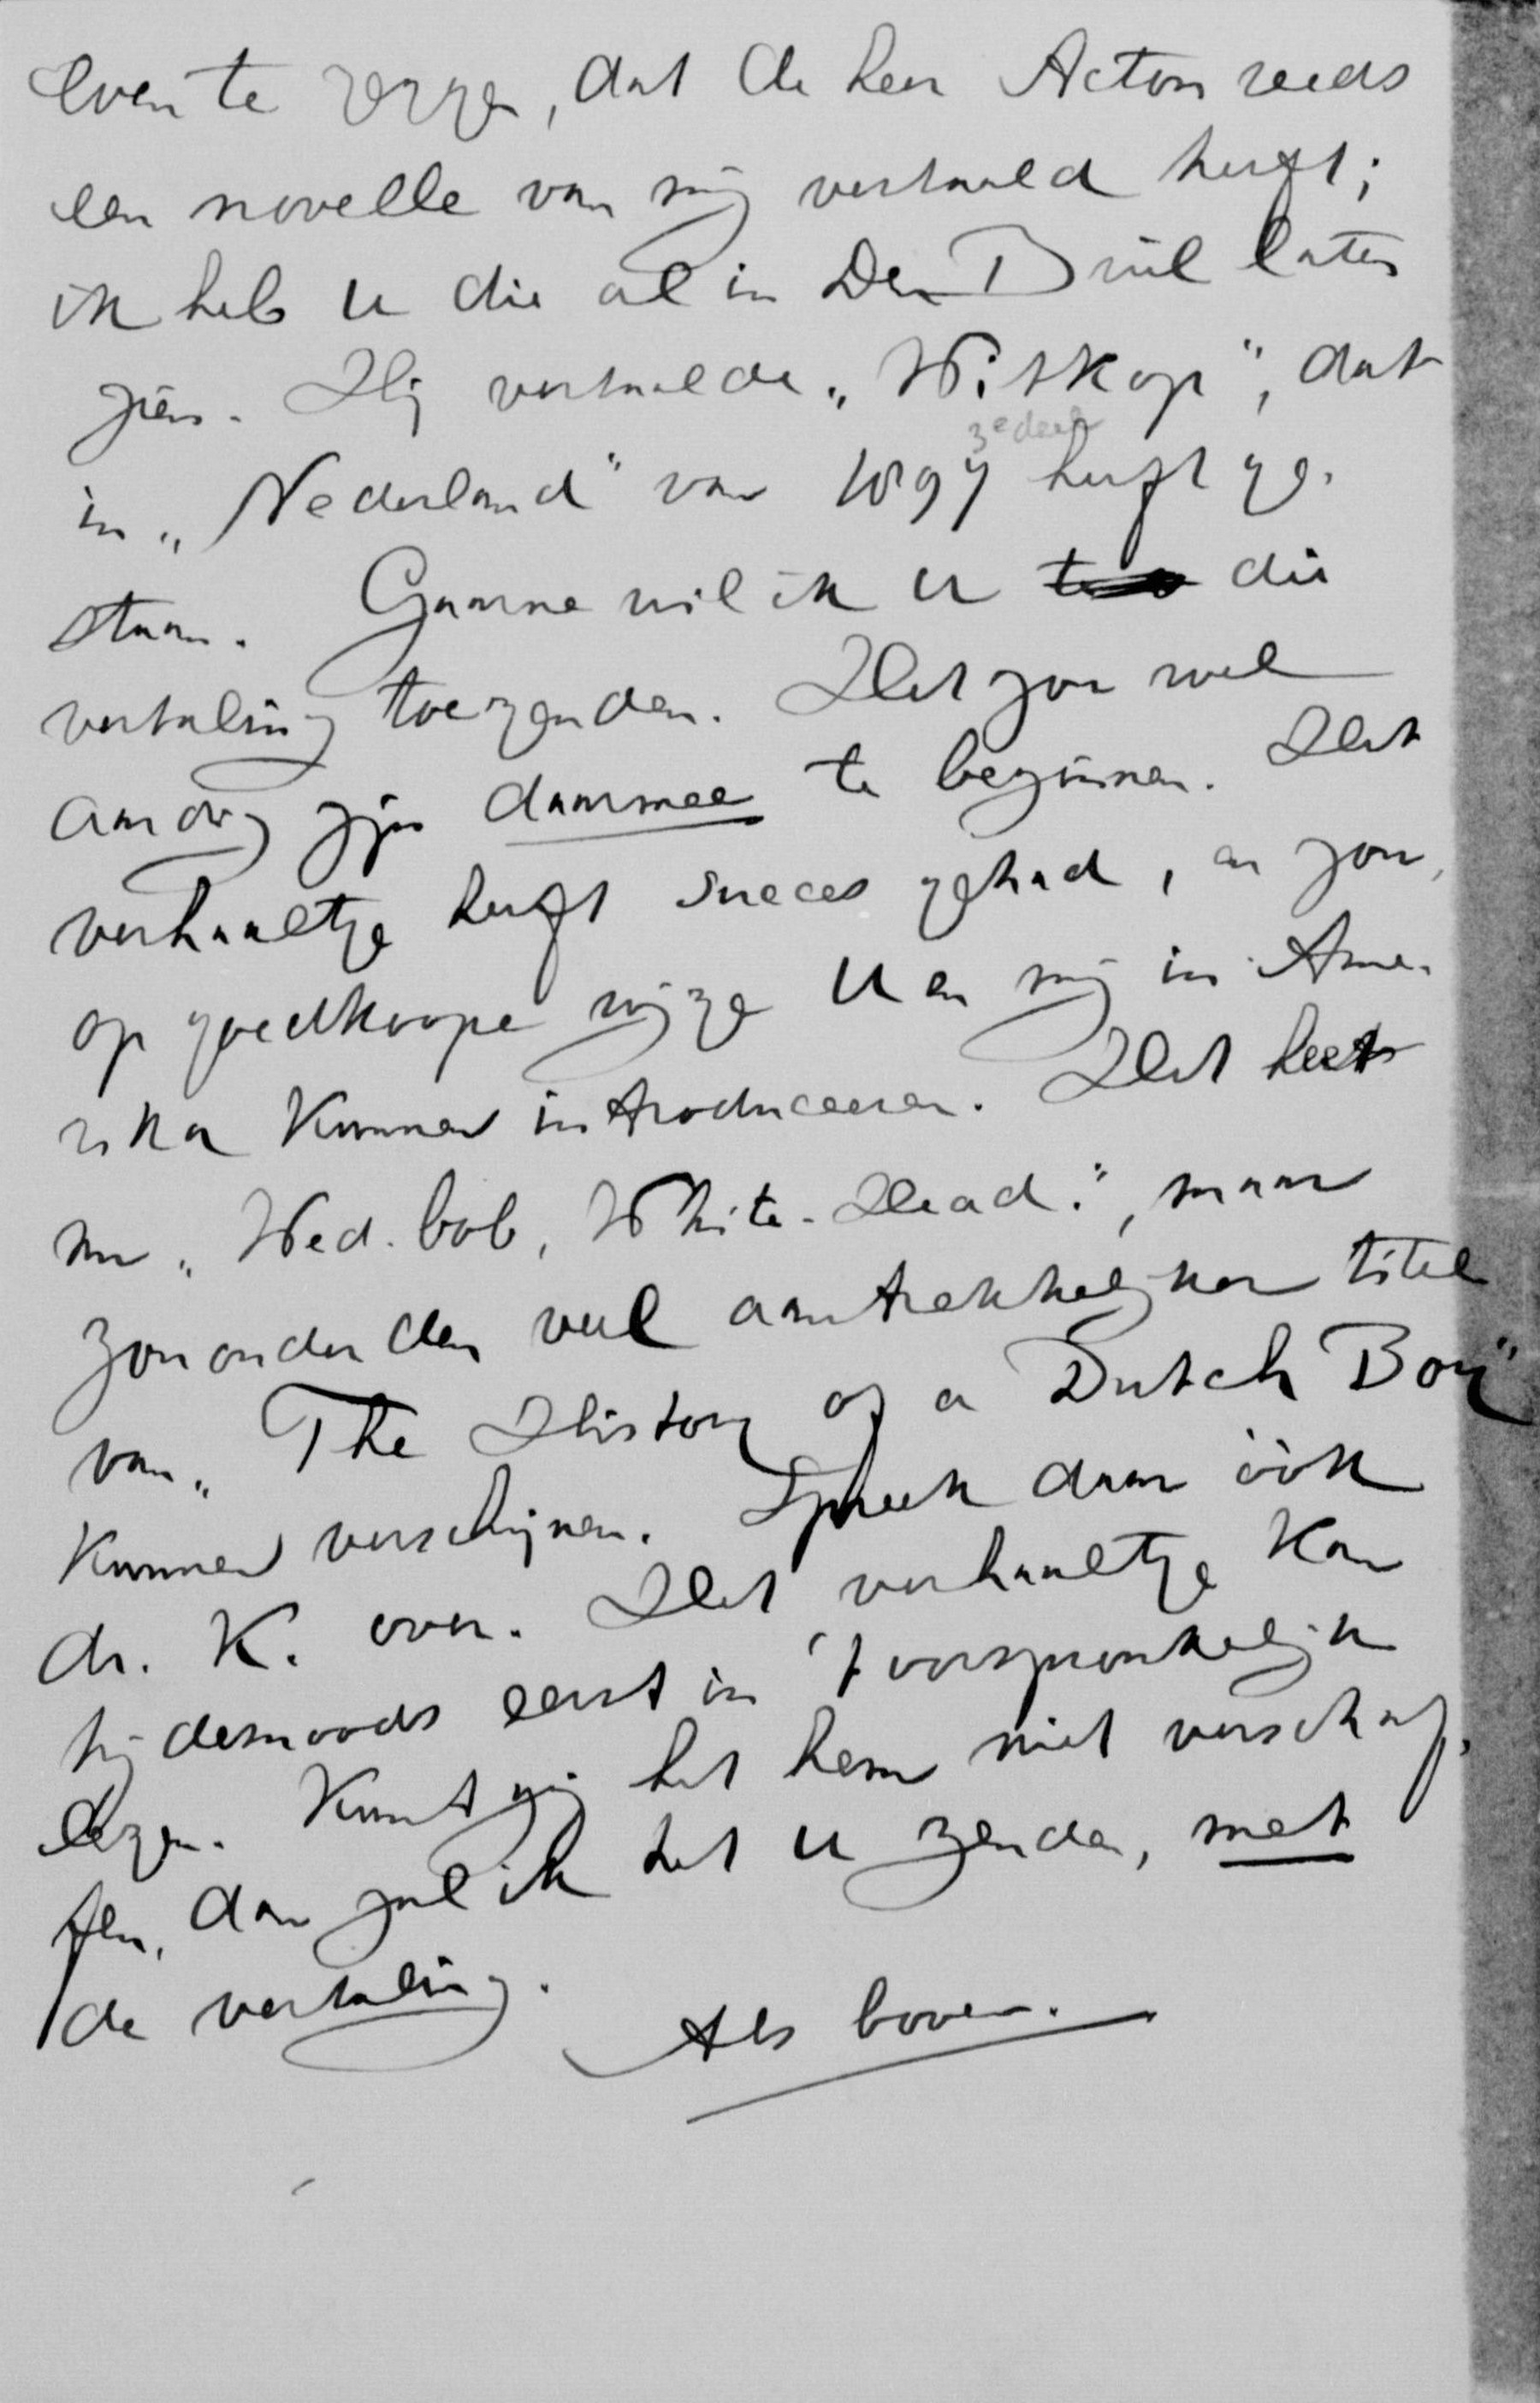 even te zeggen, dat de heer Acton reeds
een novelle van mij vertaald heeft;
ik heb u die al in Den Briel laten
zien. Hij vertaalde „Witkop", dat
3e deel
in „Nederland" van 1897 heeft ge-
staan. Gaarne wil ik u die
vertaling toezenden. Het zou wel
aardig zijn daarmee te beginnen. Het
verhaaltje heeft succes gehad, en zou,
op goedkoope wijze u en mij in Ame-
rika kunnen introduceeren. Het heet
nu „Wed. bob, White-Head.", maar
zou onder den veel aantrekkelijker titel
van „The History of a Dutch Boy"
kunnen verschijnen. Spreek daar óók
dr. K. over. Het verhaaltje kan
hij desnoods eerst in 't oorspronkelijk
lezen. Kunt gij het hem niet verschaf-
fen, dan zal ik het u zenden, met
de vertaling.
Als boven.